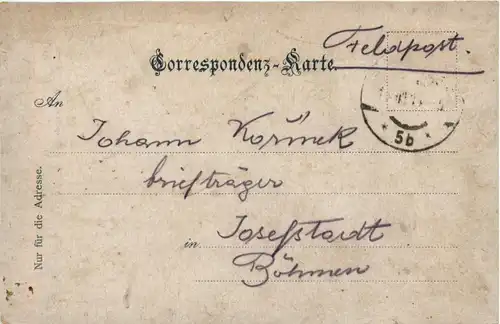 Feldpost.
Correspondenz-Karte.
An
Johann Kořinek
briefträger
in Josefstadt
Böhmen
Nur für die Adresse.
* 5b *